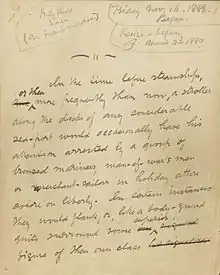 Billy Budd
Sailor
(An inside narrative)
Friday Nov. 16. 1888.
Began.
Revise — began
March 2d 1889
In the time before steamships,
or then more frequently than now, a stroller
along the docks of any considerable
sea-port would occasionally have his
attention arrested by a group of
bronzed mariners, man-of-war's men
or merchant-sailors in holiday attire
ashore on liberty. In certain instances
they would flank, or, like a body-guard
quite surround some superior
figure of their own class